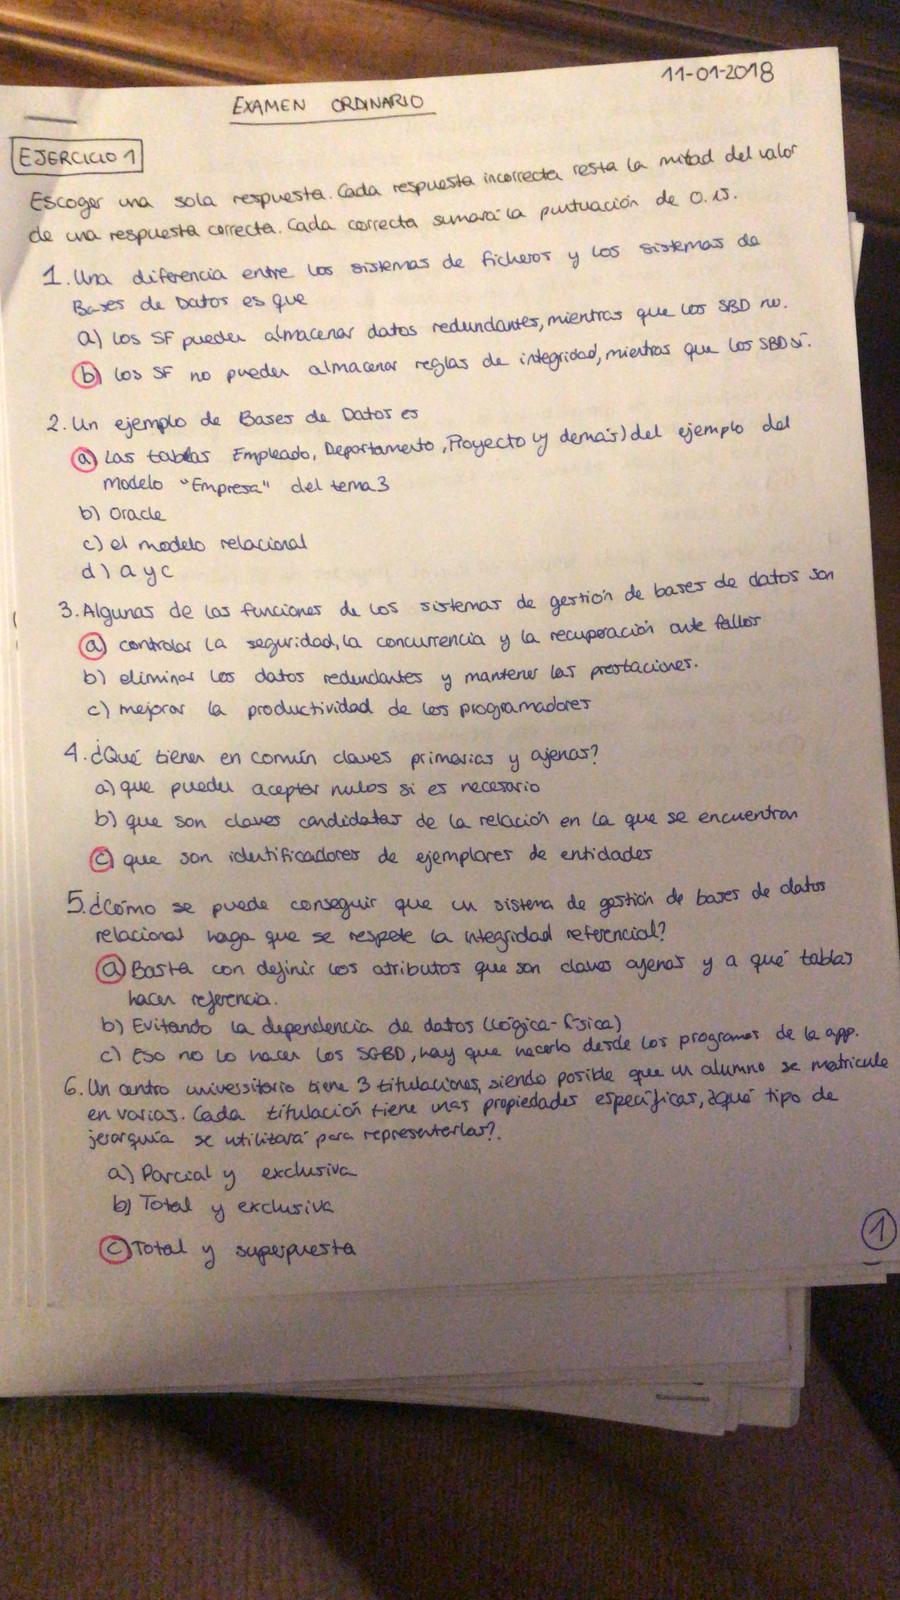 11-01-2018
EXAMEN ORDINARIO
EJERCICIO 1
Escoger una sola respuesta. Cada respuesta incorrecta resta la mitad del valor
de una respuesta correcta. Cada correcta sumará la puntuación de 0.15.
1. Una diferencia entre los sistemas de ficheros y los sistemas de
Bases de Datos es que
a) los SF pueden almacenar datos redundantes, mientras que los SBD no.
b) los SF no pueden almacenar reglas de integridad, mientras que los SBD sí.
2. Un ejemplo de Bases de Datos es
a) Las tablas Empleado, Departamento, Proyecto (y demás) del ejemplo del
modelo "Empresa" del tema 3
b) Oracle
c) el modelo relacional
d) a y c
3. Algunas de las funciones de los sistemas de gestión de bases de datos son
a) controlar la seguridad, la concurrencia y la recuperación ante fallos
b) eliminar los datos redundantes y mantener las prestaciones.
c) mejorar la productividad de los programadores
4. ¿Qué tienen en común claves primarias y ajenas?
a) que pueden aceptar nulos si es necesario
b) que son claves candidatas de la relación en la que se encuentran
c) que son identificadores de ejemplares de entidades
5. ¿Cómo se puede conseguir que un sistema de gestión de bases de datos
relacional haga que se respete la integridad referencial?
a) Basta con definir los atributos que son claves ajenas y a qué tablas
hacen referencia.
b) Evitando la dependencia de datos (lógica-física)
c) Eso no lo hacen los SGBD, hay que hacerlo desde los programas de la app.
6. Un centro universitario tiene 3 titulaciones, siendo posible que un alumno se matricule
en varias. Cada titulación tiene unas propiedades específicas, ¿qué tipo de
jerarquía se utilizará para representarlas?.
a) Parcial y exclusiva
b) Total y exclusiva
c) Total y superpuesta
1